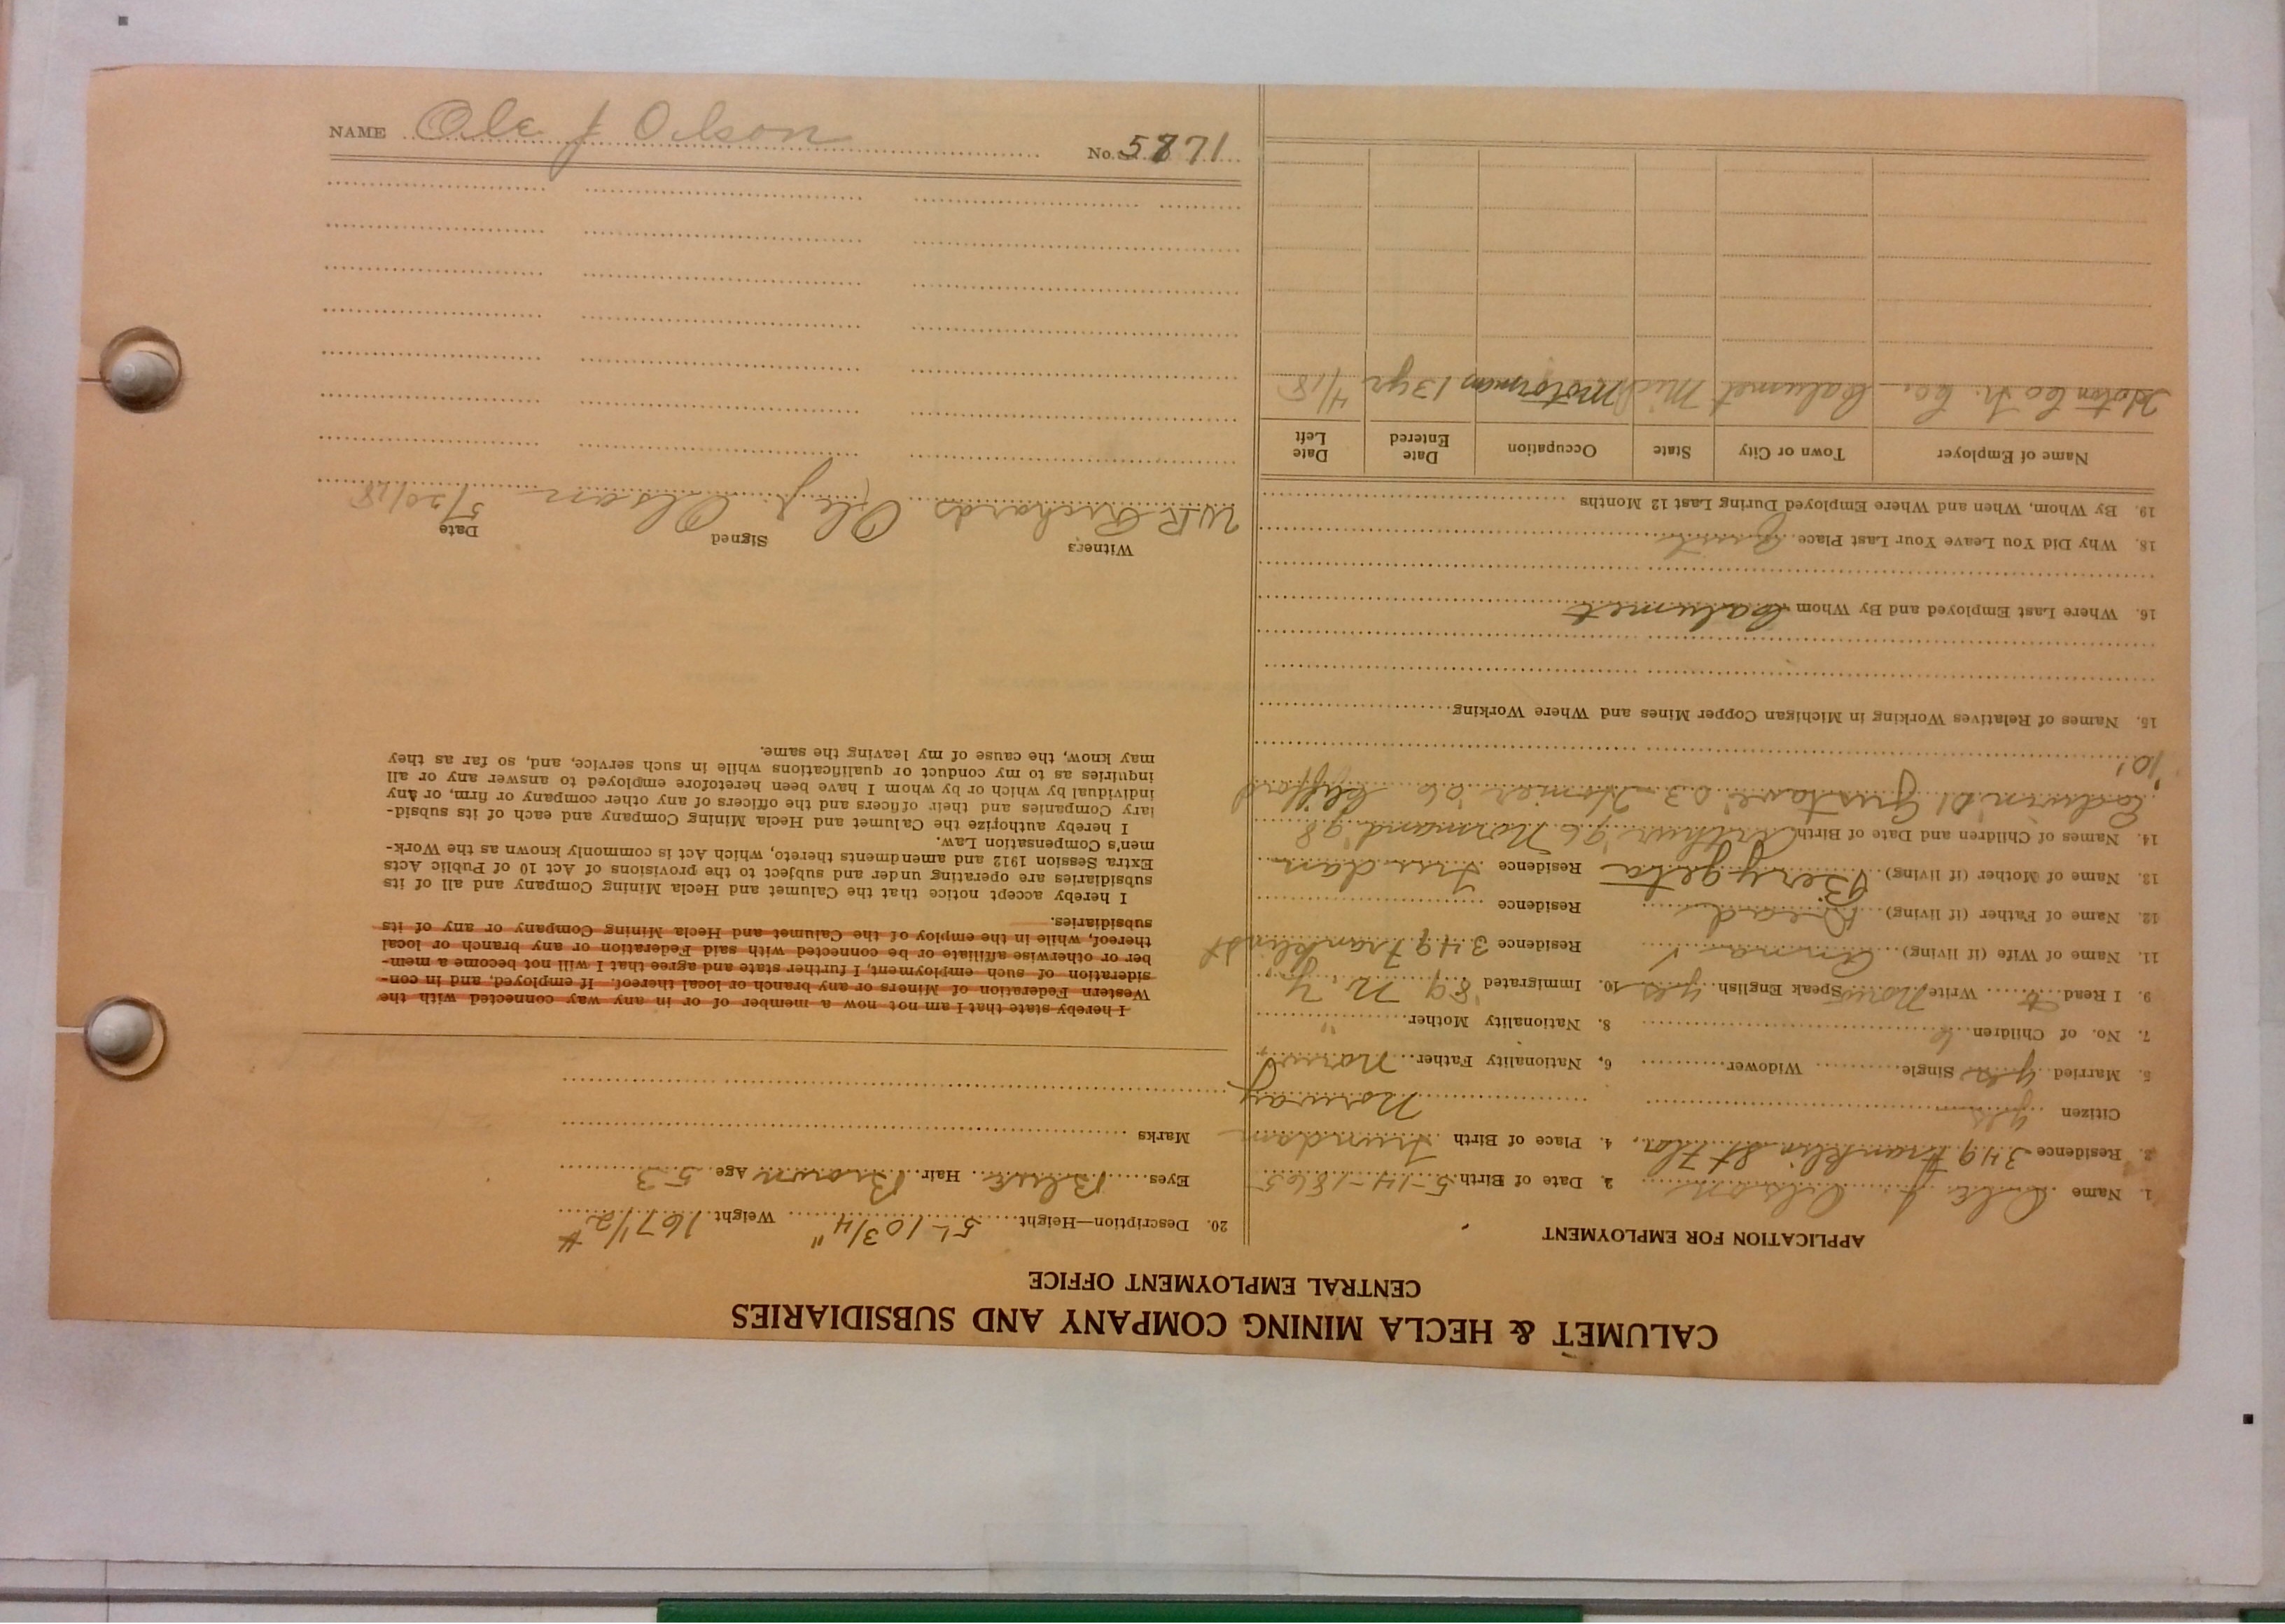 NAME Ole J Olson No. 5871
CALUMET & HECLA MINING COMPANY AND SUBSIDIARIES
CENTRAL EMPLOYMENT OFFICE
APPLICATION FOR EMPLOYMENT
1. Name Ole J. Olson 2. Date of Birth 5-14-1865
3. Residence 349 Franklin St 4. Place of Birth
Citizen yes Norway
5. Married yes Single Widower 6. Nationality Father Norw
7. No. of Children 6 8. Nationality Mother "
9. I Read Write Norw Speak English yes 10. Immigrated '89 N. Y.
11. Name of Wife (if living) Anna Residence 349 Franklin St
12. Name of Father (if living) Dead Residence
13. Name of Mother (if living) Residence
14. Names of Children and Date of Birth Arthur '96 Normand '98
Edwin 01 Gustave '03 Homer '06 Clifford
'10
15. Names of Relatives Working in Michigan Copper Mines and Where Working
16. Where Last Employed and By Whom Calumet
18. Why Did You Leave Your Last Place Quit
19. By Whom, When and Where Employed During Last 12 Months
Name of Employer Town or City State Occupation Date Entered Date Left
Co Calumet Mich Motorman 13 yr 4/18
20. Description—Height 5'-10 3/4" Weight 167 1/2 #
Eyes Blue Hair Brown Age 53
Marks
I hereby state that I am not now a member of or in any way connected with the
Western Federation of Miners or any branch or local thereof. If employed, and in con-
sideration of such employment, I further state and agree that I will not become a mem-
ber or otherwise affiliate or be connected with said Federation or any branch or local
thereof, while in the employ of the Calumet and Hecla Mining Company or any of its
subsidiaries.
I hereby accept notice that the Calumet and Hecla Mining Company and all of its
subsidiaries are operating under and subject to the provisions of Act 10 of Public Acts
Extra Session 1912 and amendments thereto, which Act is commonly known as the Work-
men's Compensation Law.
I hereby authorize the Calumet and Hecla Mining Company and each of its subsid-
iary Companies and their officers and the officers of any other company or firm, or any
individual by which or by whom I have been heretofore employed to answer any or all
inquiries as to my conduct or qualifications while in such service, and, so far as they
may know, the cause of my leaving the same.
Witness Signed Date
W.R. Richards Ole J. Olson 5/20/18